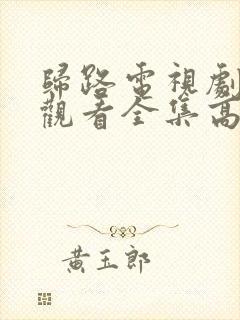 歸路電視劇
觀看全集高
黃玉郎